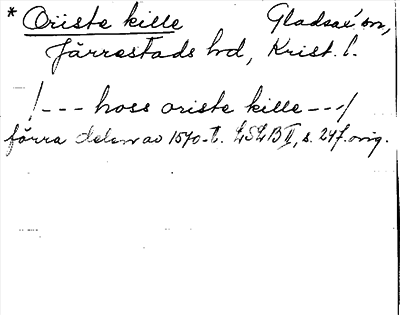 * Oriste kille Gladsax sn,
Järrestads hd, Krist. l.
/--- hoss oriste kille ---/
förra delen av 1570-t. LSLB II, s. 247. orig.